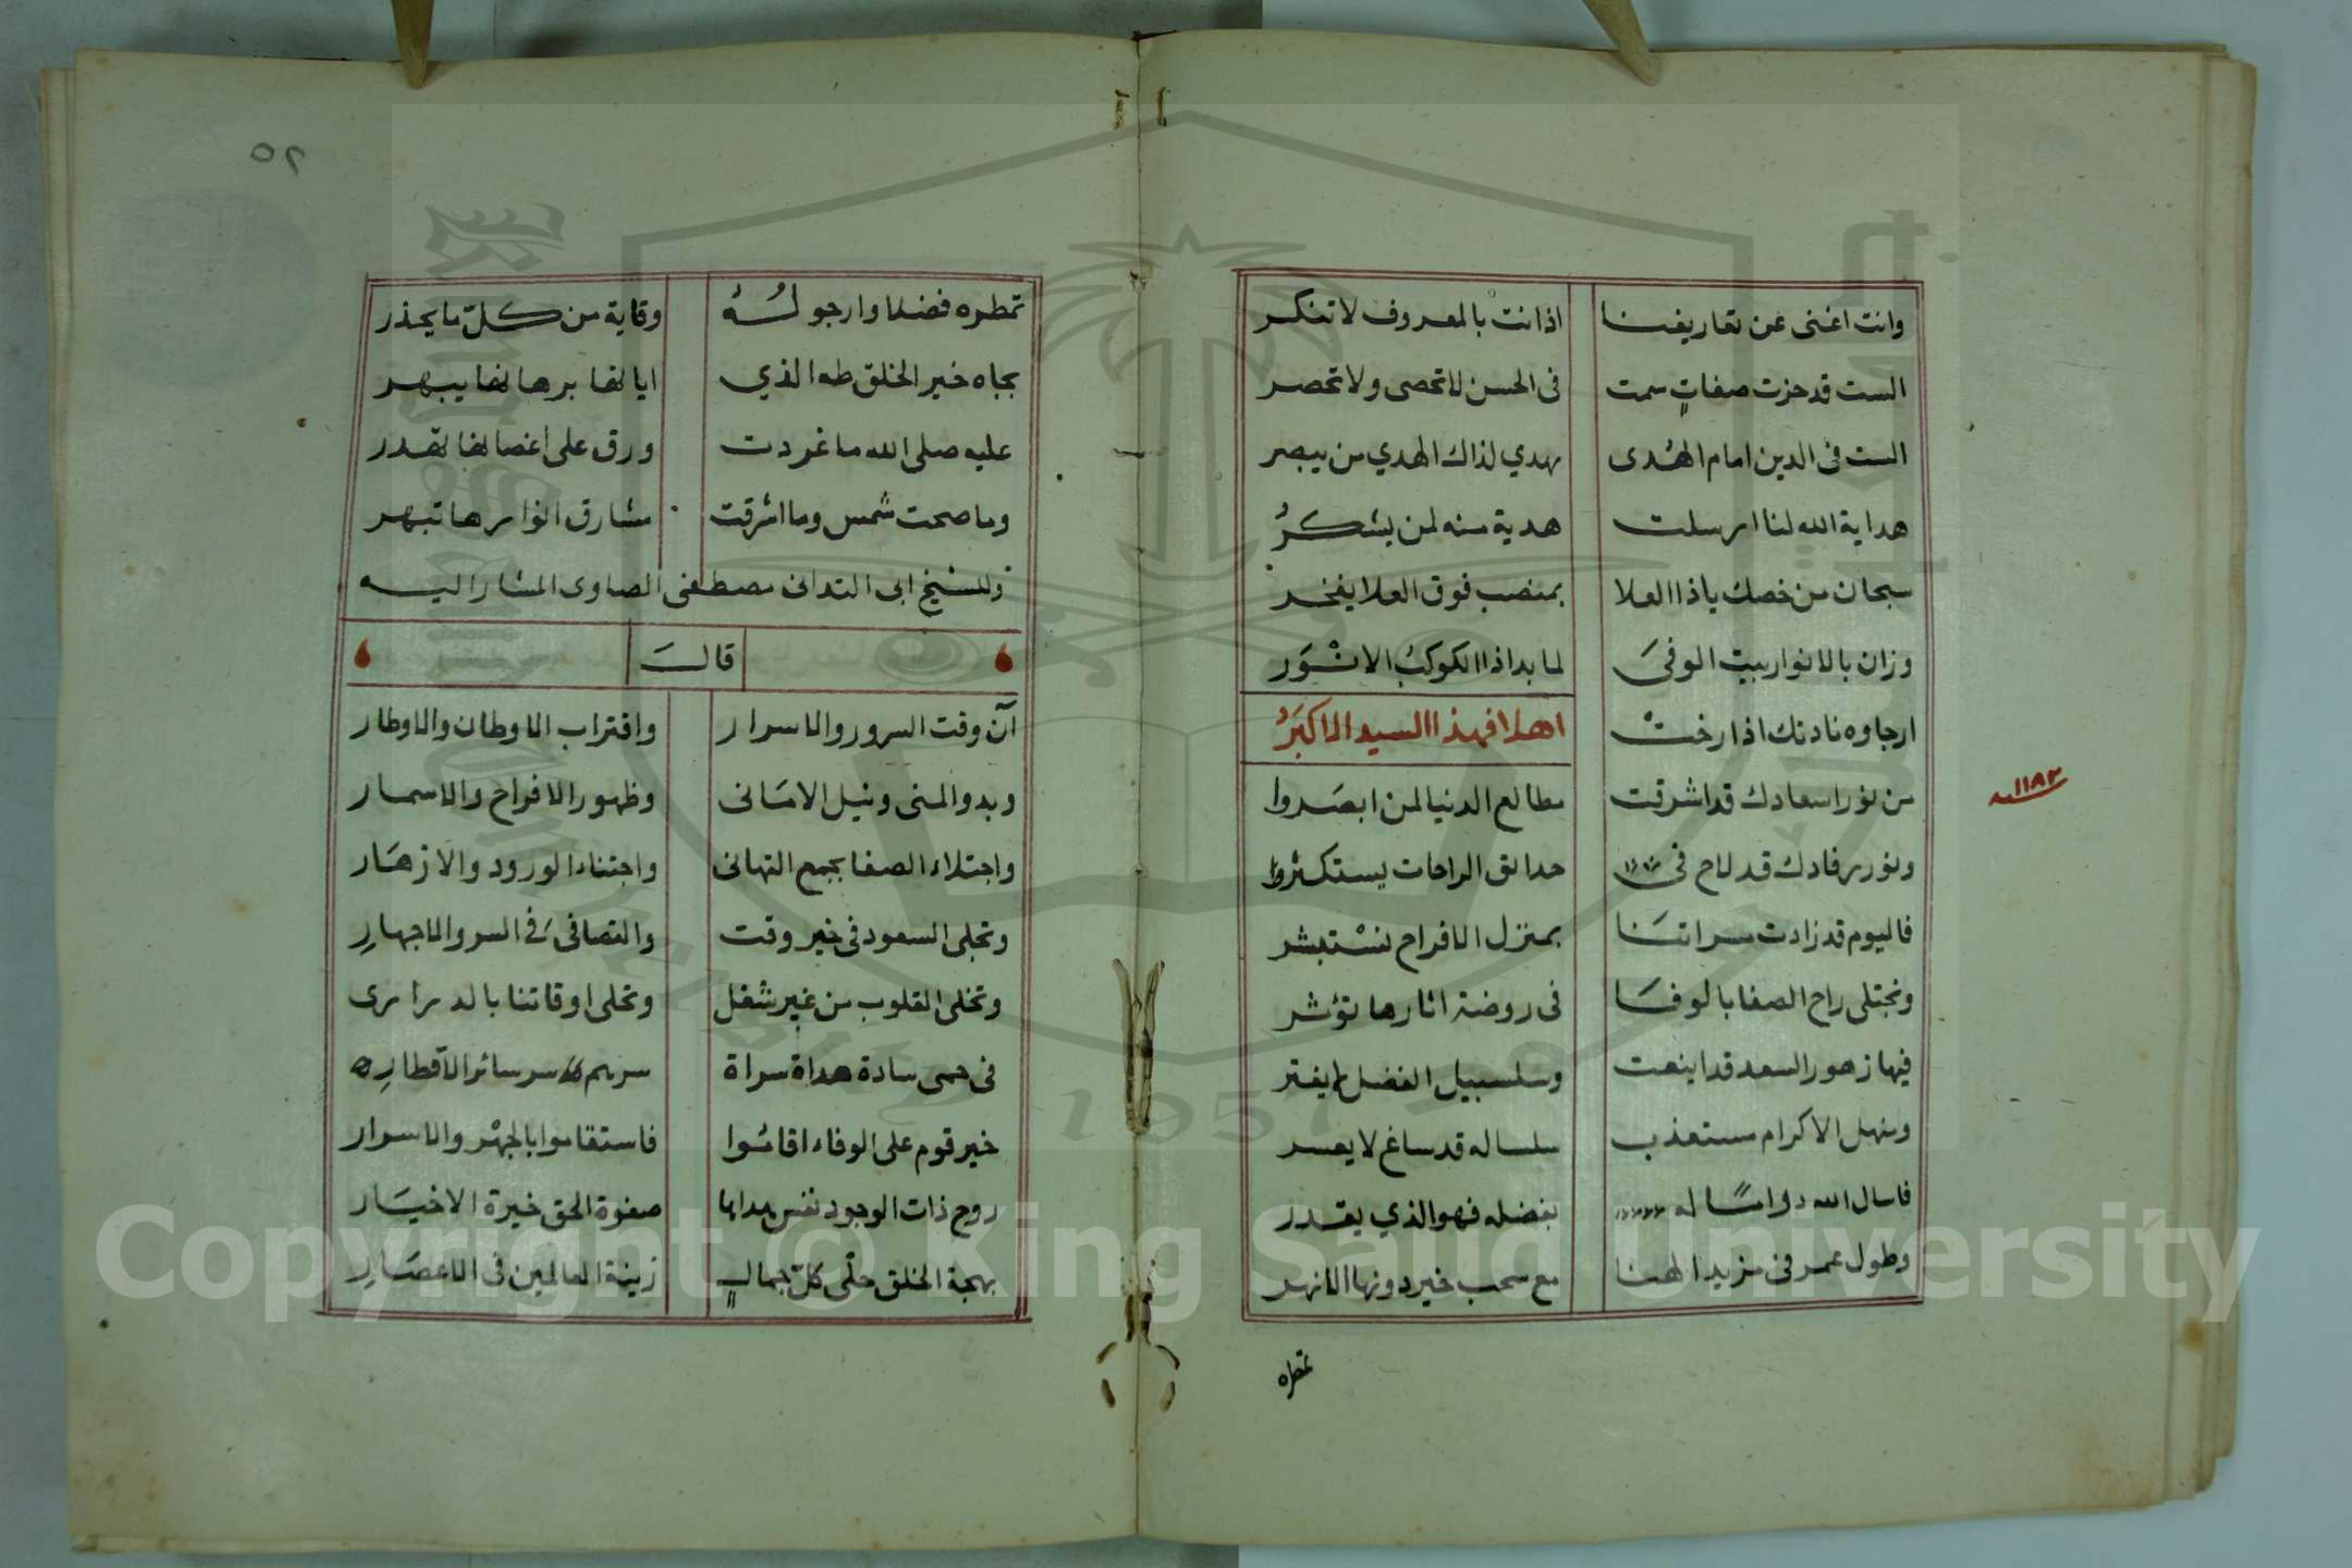 وانت اغنى عن تعاريفنا اذ انت بالمعروف لا تنكر
الست قد حزت صفاتٍ سمت فى الحسن لا تحصى ولا تحصر
الست فى الدين امام الهُدى يهدي لذاك الهدي من يبصر
هداية الله لنا ارسلت هدية منه لمن يشكرُ
سبحان من خصك ياذا العلا بمنصب فوق العلا يفخر
وزان بالانوار بيت الوفىَ لما بدا ذا الكوكبُ الانْوَر
ارجاوه نادتك اذ ارختْ اهلا فهذا السيد الاكبَرُ
١١٨٢
من نور اسعادك قد اشرقت مطالع الدنيا لمن ابصَروا
ونور رفادك قد لاح فى حدائق الراحات يستكثروا
فاليوم قد زادت مسراتنَا بمنزل الافراح نسْتبشر
ونجتلى راح الصفا بالوفَا فى روضة اثارها تؤثر
فيها زهور السعد قد اينعت وسلسبيل الفضل لا يفتر
ومنهل الاكرام مستعذب سلساله قد ساغ لا يعسر
فاسال الله دوامًا له بفضله فهو الذي يقدر
وطول عمر فى مزيد الهنا مع سحب خير دونها الانهر
تمطره
٥٢
تمطره فضلا وارجو لَهُ وقاية من كلّ ما يحذر
بجاه خير الخلق طه الذي اياتها برهانها يبهر
عليه صلى الله ما غردت ورق على اغصانها تهدر
وما صحت شمس وما اشرقت مشارق انوارها تبهر
وللشيخ ابى التدانى مصطفى الصاوى المشار اليه
قالَ
آن وقت السرور والاسرار واقتراب الاوطان والاوطار
وبدو المنى ونيل الامَانى وظهور الافراح والاسمار
واجتلاء الصفا بجمع التهانى واجتناء الورود والازهَار
وتجلى السعود فى خير وقت والتصافى فى السر والاجهارِ
وتخلى القلوب من غير شغل وتحلى اوقاتنا بالدرارى
فى حمى سادة هداة سراة سرهم سر سائر الاقطارِ
خير قوم على الوفاء اقامُوا فاستقاموا بالجهْر والاسرار
روح ذات الوجود نفس صفوة الحق خيرة الاخيَار
بهجة الخلق حلْى كلّ جمالٍ زينة العالمين فى الاعصَارِ
Copyright © King Saud University
1957